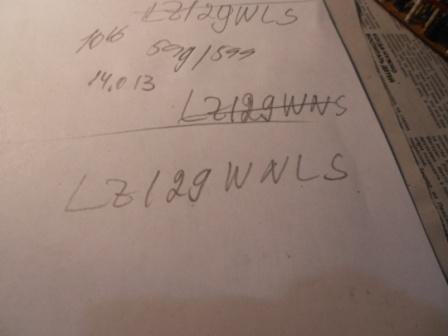 LZ129WLS
1066 599/599
14.013
LZ129WNS
LZ129WNLS